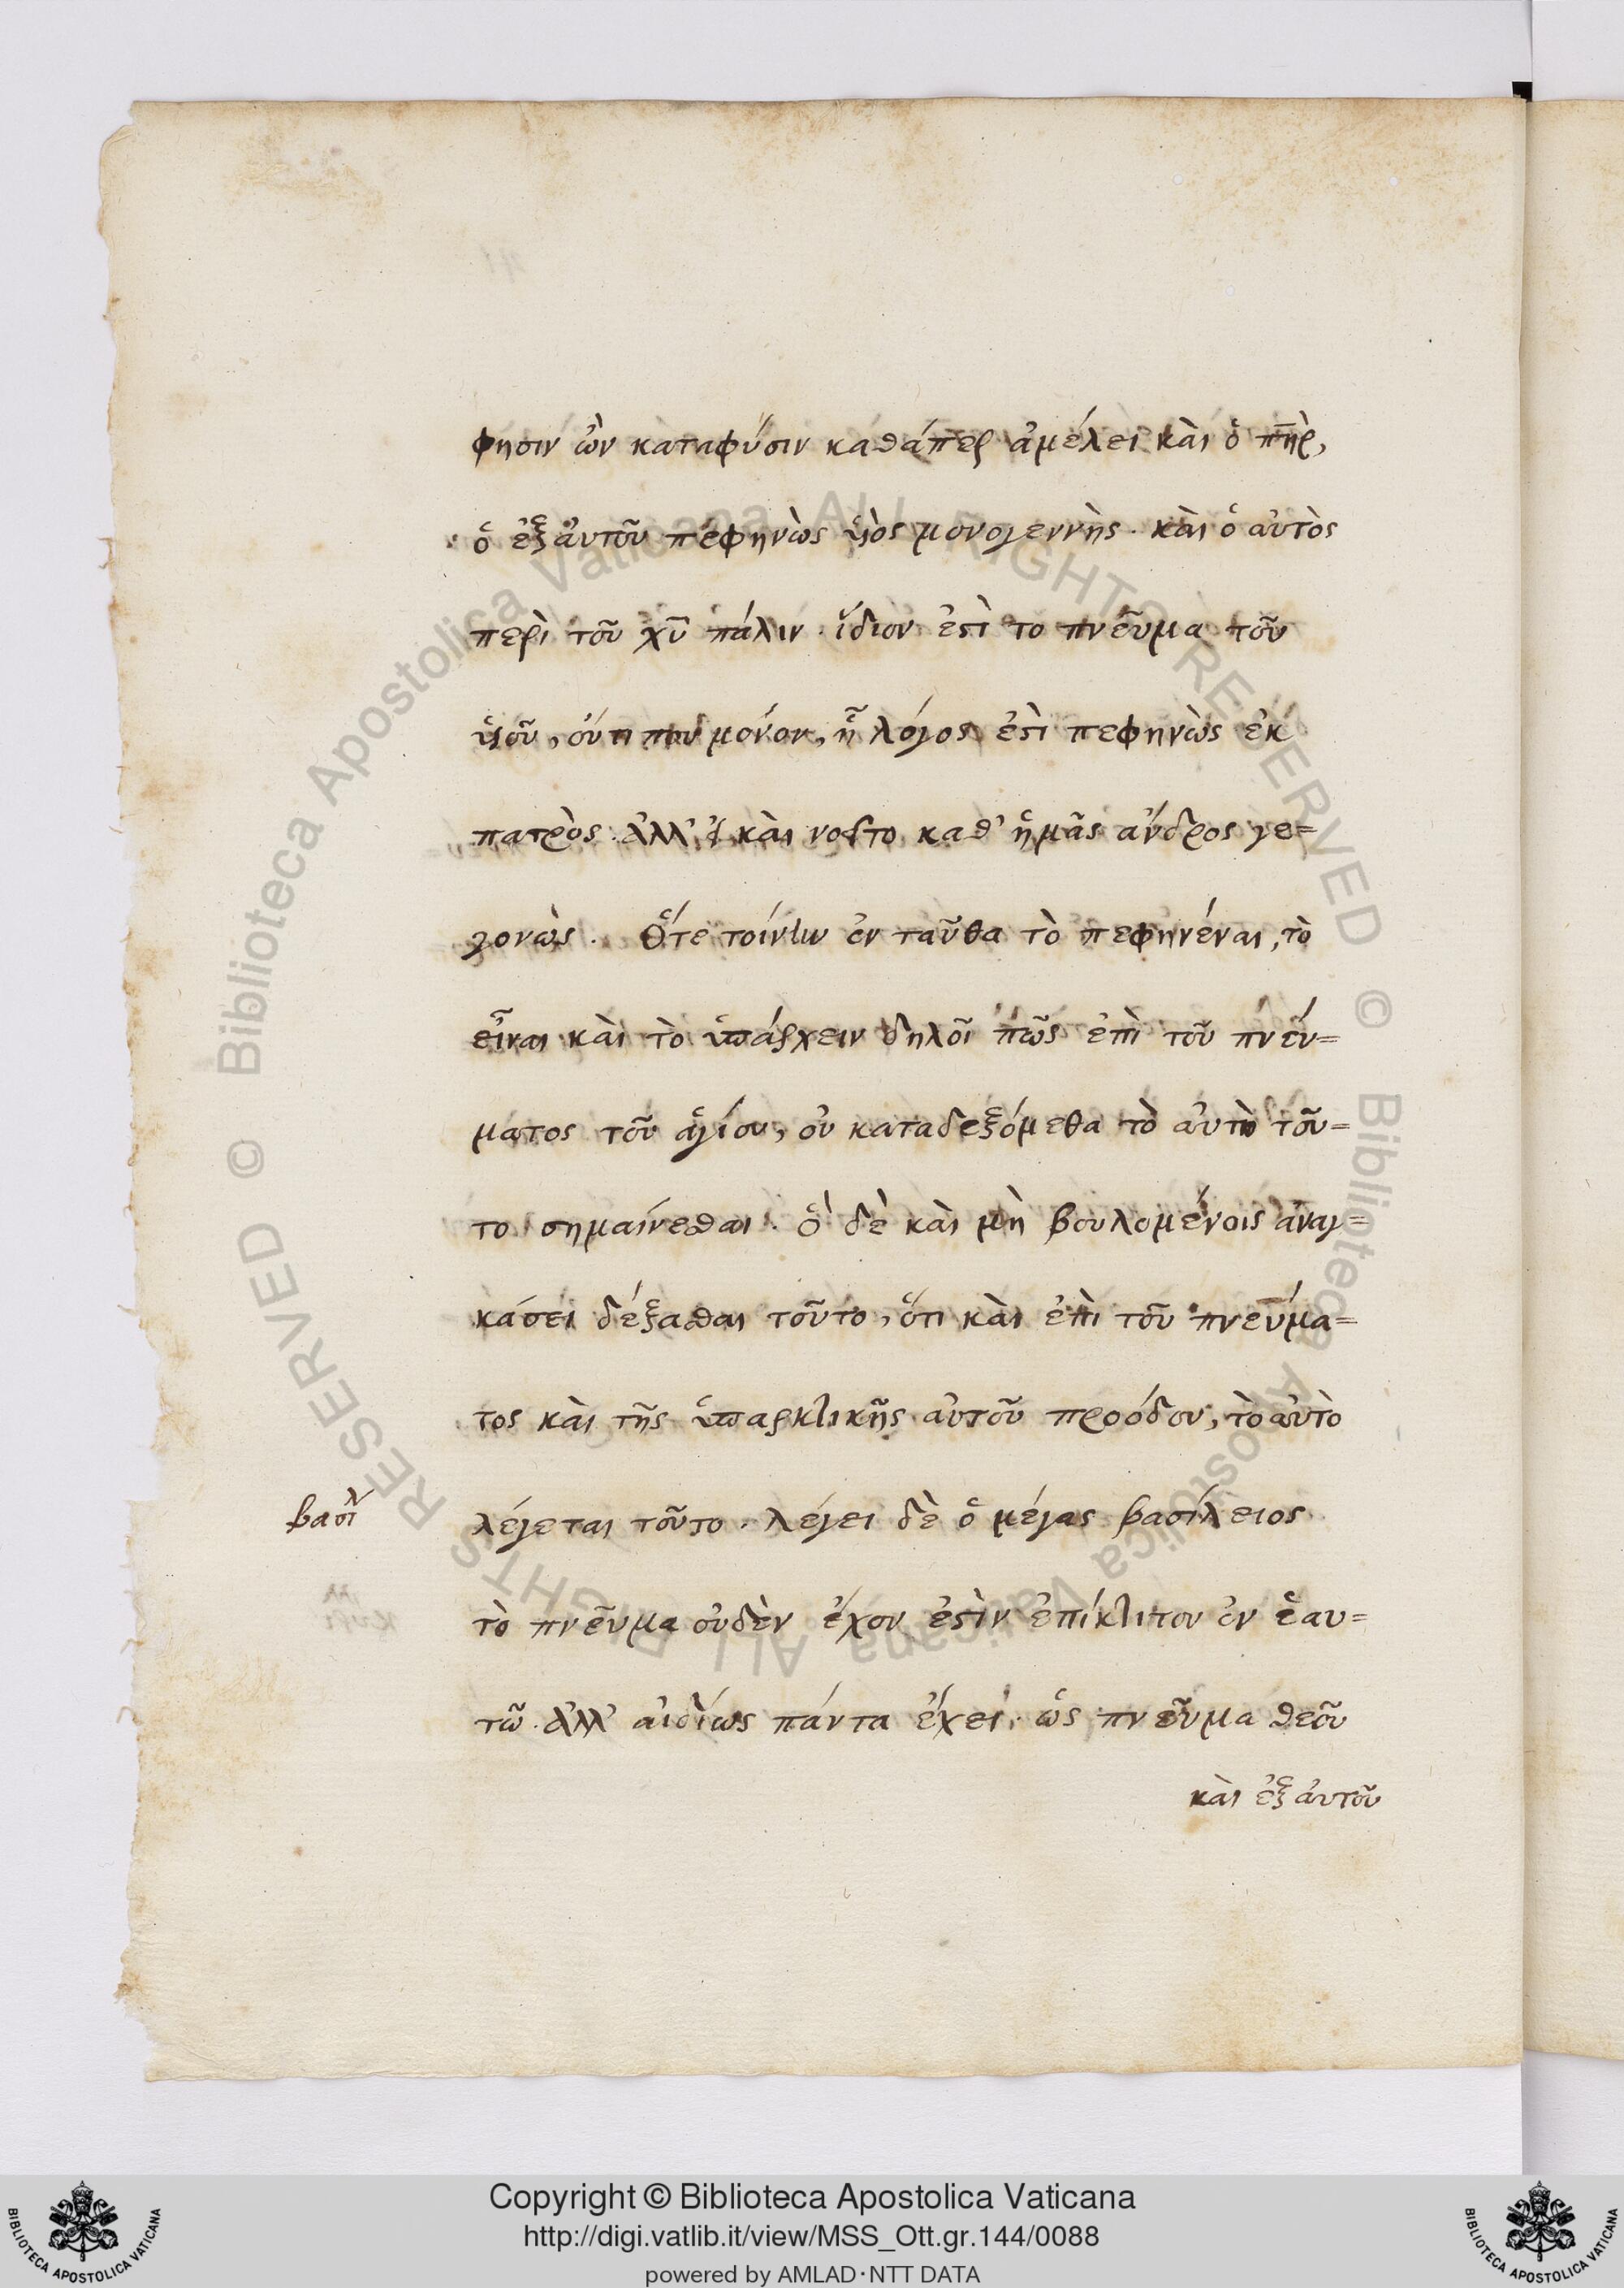 φησιν ὢν καταφύσιν καθάπερ ἀμέλει κὰι ὁ π̅η̅ρ̅,
ὁ ἐξ ἀυτοῦ πεφηνὼς ὑιὸς μονογεννὴς . κὰι ὁ αὐτὸς
περὶ τοῦ χ̅υ̅ πάλιν . ἴδιον ἐστὶ το πνεῦμα τοῦ
ὑιοῦ, οὔτι που μόνον, ᾗ λόγος ἐστὶ πεφηνὼς ἐκ
πατρὸς . ἀλλ' εἰ κὰι νοεῖτο καθ' ἡμᾶς ἀνδρος γε=
γονὼς . Ὅτε τοίνυν ἐν ταῦθα τὸ πεφηνέναι, τὸ
εἶναι κὰι τὸ ὑπάρχειν δηλοῖ πῶς ἐπὶ τοῦ πνέυ=
ματος τοῦ ἁγίου, οὐ καταδεξόμεθα τὸ ἀυτὸ τοῦ=
το σημαίνεσθαι . Ὃ δὲ κὰι μὴ βουλομένοις ἀναγ=
κάσει δέξασθαι τοῦτο, ὅτι κὰι ἐπὶ τοῦ πνεύμα=
τος κὰι τῆς ὑπαρκτικῆς αὐτοῦ προόδου, τὸ αὐτὸ
βασιλ
λέγεται τοῦτο . λέγει δὲ ὁ μέγας βασίλειος
τὸ πνεῦμα οὐδὲν ἔχον ἐστὶν ἐπίκτιτον ἐν ἑαυ=
τῶ . ἀλλ' αἰδίως πάντα ἔχει . ὡς πνεῦμα θεοῦ
κὰι ἐξ ἀυτοῦ
© Biblioteca Apostolica Vaticana ALL RIGHTS RESERVED
© Biblioteca Apostolica Vaticana ALL RIGHTS RESERVED
Copyright © Biblioteca Apostolica Vaticana
http://digi.vatlib.it/view/MSS_Ott.gr.144/0088
powered by AMLAD·NTT DATA
BIBLIOTECA APOSTOLICA VATICANA
BIBLIOTECA APOSTOLICA VATICANA